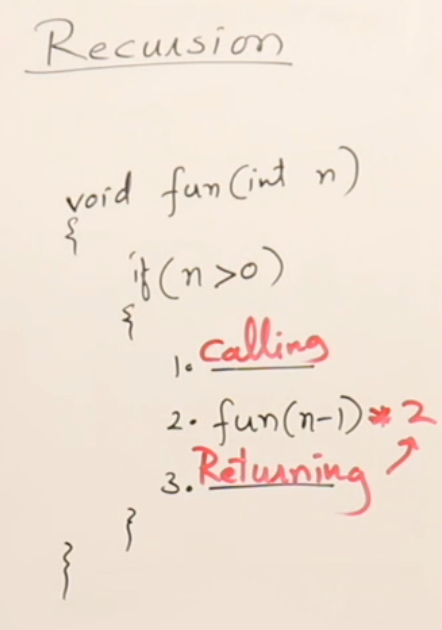 Recursion
void fun(int n)
{
if(n>0)
{
1. Calling
2. fun(n-1)*2
3. Returning
}
}